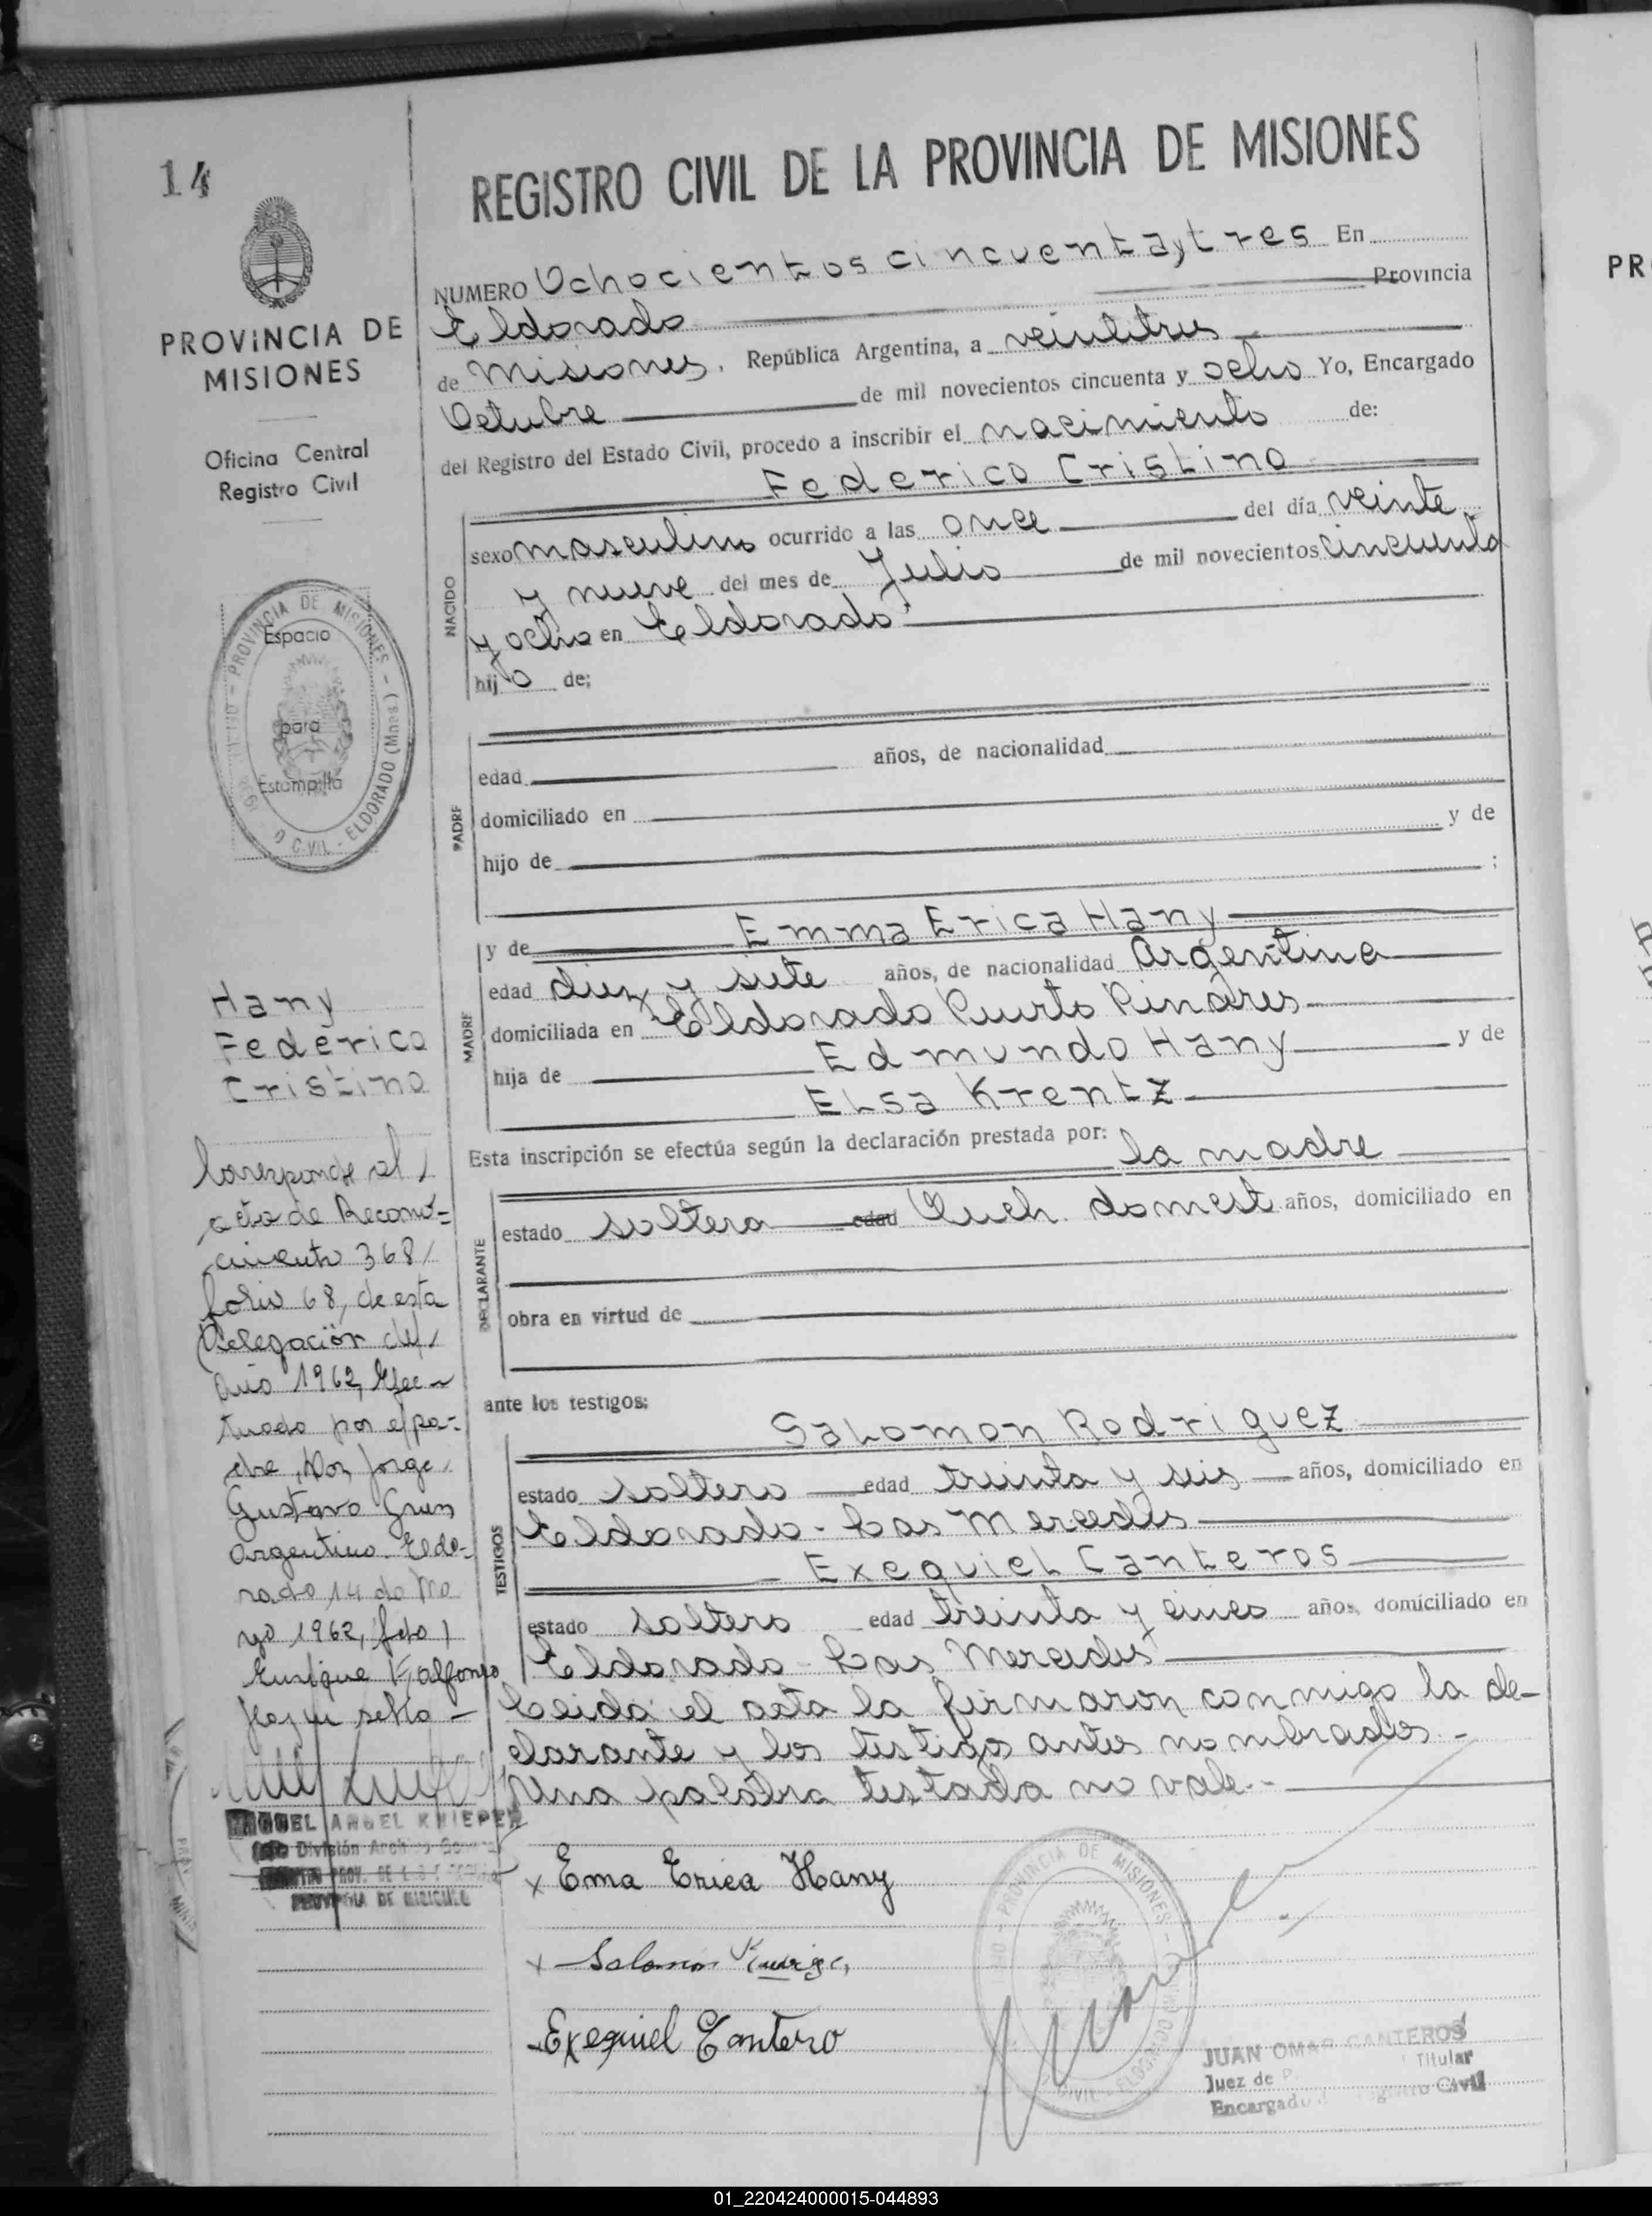 14
REGISTRO CIVIL DE LA PROVINCIA DE MISIONES
PROVINCIA DE
MISIONES
Oficina Central
Registro Civil
NUMERO Ochocientos cincuentaytres En
Eldorado Provincia
de Misiones, República Argentina, a veintitres
Octubre de mil novecientos cincuenta y ocho Yo, Encargado
del Registro del Estado Civil, procedo a inscribir el nacimiento de:
Federico Cristino
NACIDO
sexo masculino ocurrido a las once del día veinte
y nueve del mes de Julio de mil novecientos cincuenta
y ocho en Eldorado
hijo de;
PROVINCIA DE MISIONES - ELDORADO (Mnes.)
Espacio
para
Estampilla
PADRE
edad años, de nacionalidad
domiciliado en
hijo de y de
;
MADRE
y de Emma Erica Hany
edad diez y siete años, de nacionalidad Argentina
domiciliada en Eldorado Puerto Pinares
hija de Edmundo Hany y de
Elsa Krentz
Esta inscripción se efectúa según la declaración prestada por: la madre
DECLARANTE
estado soltera edad Queh. domest años, domiciliado en
obra en virtud de
ante los testigos:
TESTIGOS
Salomon Rodriguez
estado soltero edad treinta y seis años, domiciliado en
Eldorado - Las Mercedes
Exequiel Canteros
estado soltero edad treinta y cinco años, domiciliado en
Eldorado - Las Mercedes
Leida el acta la firmaron conmigo la de-
clarante y los testigos antes nombrados. -
Una palabra testada no vale. -
Hany
Federico
Cristino
Corresponde al
acta de Reconó-
cimiento 368/
folio 68, de esta
Delegación del
año 1962, Efec-
tuado por el pa-
dre, Don Jorge
Gustavo
Argentino. Eldo-
rado 14 de Ma
yo 1962, fdo)
Enrique
Hay un sello -
MIGUEL ANGEL KNIEPER
División Archivo General
PROVINCIA DE MISIONES
x Ema Erica Hany
x Salomon
Exequiel Cantero
PROVINCIA DE MISIONES
JUAN OMAR CANTEROS
Juez de P Titular
Encargado Registro Civil
01_220424000015-044893